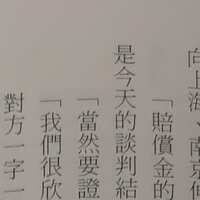 向上海、南京
「賠償金的
是今天的談判結
「當然要證
「我們很欣
對方一字一